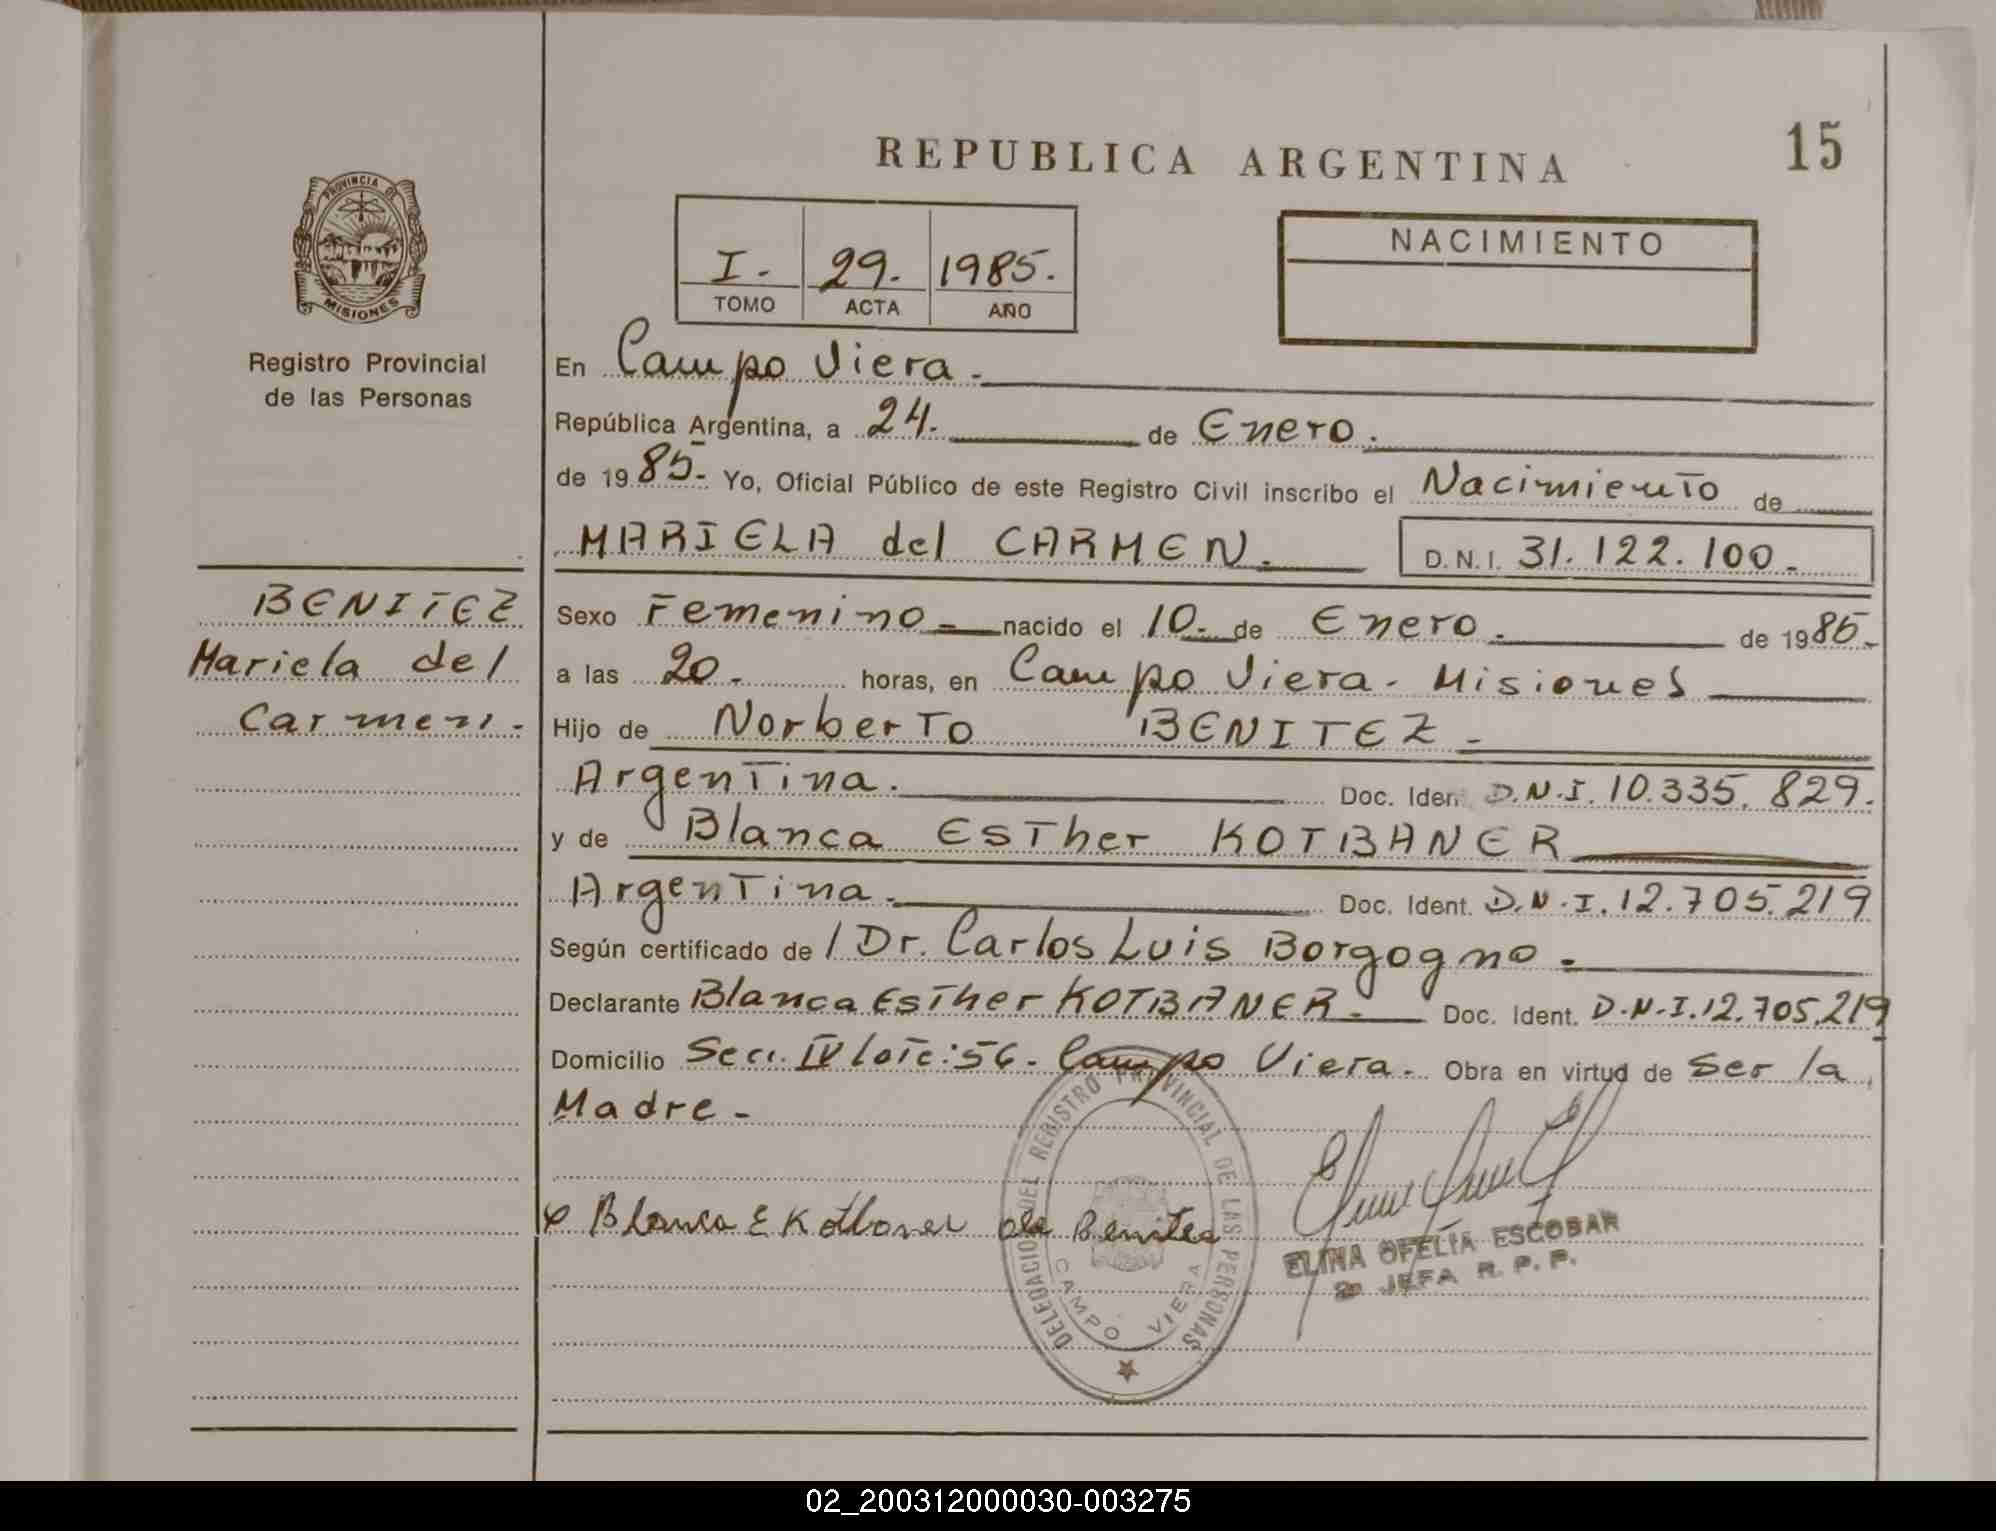 REPUBLICA ARGENTINA
15
PROVINCIA DE
MISIONES
Registro Provincial
de las Personas
I. 29. 1985.
TOMO ACTA AÑO
NACIMIENTO
En Campo Viera.
República Argentina, a 24. de Enero.
de 1985.- Yo, Oficial Público de este Registro Civil inscribo el Nacimiento de
MARIELA del CARMEN. D.N.I. 31.122.100.-
BENITEZ
Mariela del
Carmen.-
Sexo Femenino.- nacido el 10.- de Enero. de 1985.-
a las 20.- horas, en Campo Viera. Misiones
Hijo de Norberto BENITEZ.-
Argentina. Doc. Iden D.N.I. 10.335.829.
y de Blanca Esther KOTBANER
Argentina. Doc. Ident. D.N.I. 12.705.219
Según certificado de / Dr. Carlos Luis Borgogno.
Declarante Blanca Esther KOTBANER.- Doc. Ident. D.N.I. 12.705.219
Domicilio Secc. IV lote: 56. Campo Viera. Obra en virtud de Ser la
Madre.-
Blanca E Kotbaner de Benitez
DELEGACION DEL REGISTRO PROVINCIAL DE LAS PERSONAS
CAMPO VIERA
ELINA OFELIA ESCOBAR
JEFA R. P. P.
02_200312000030-003275